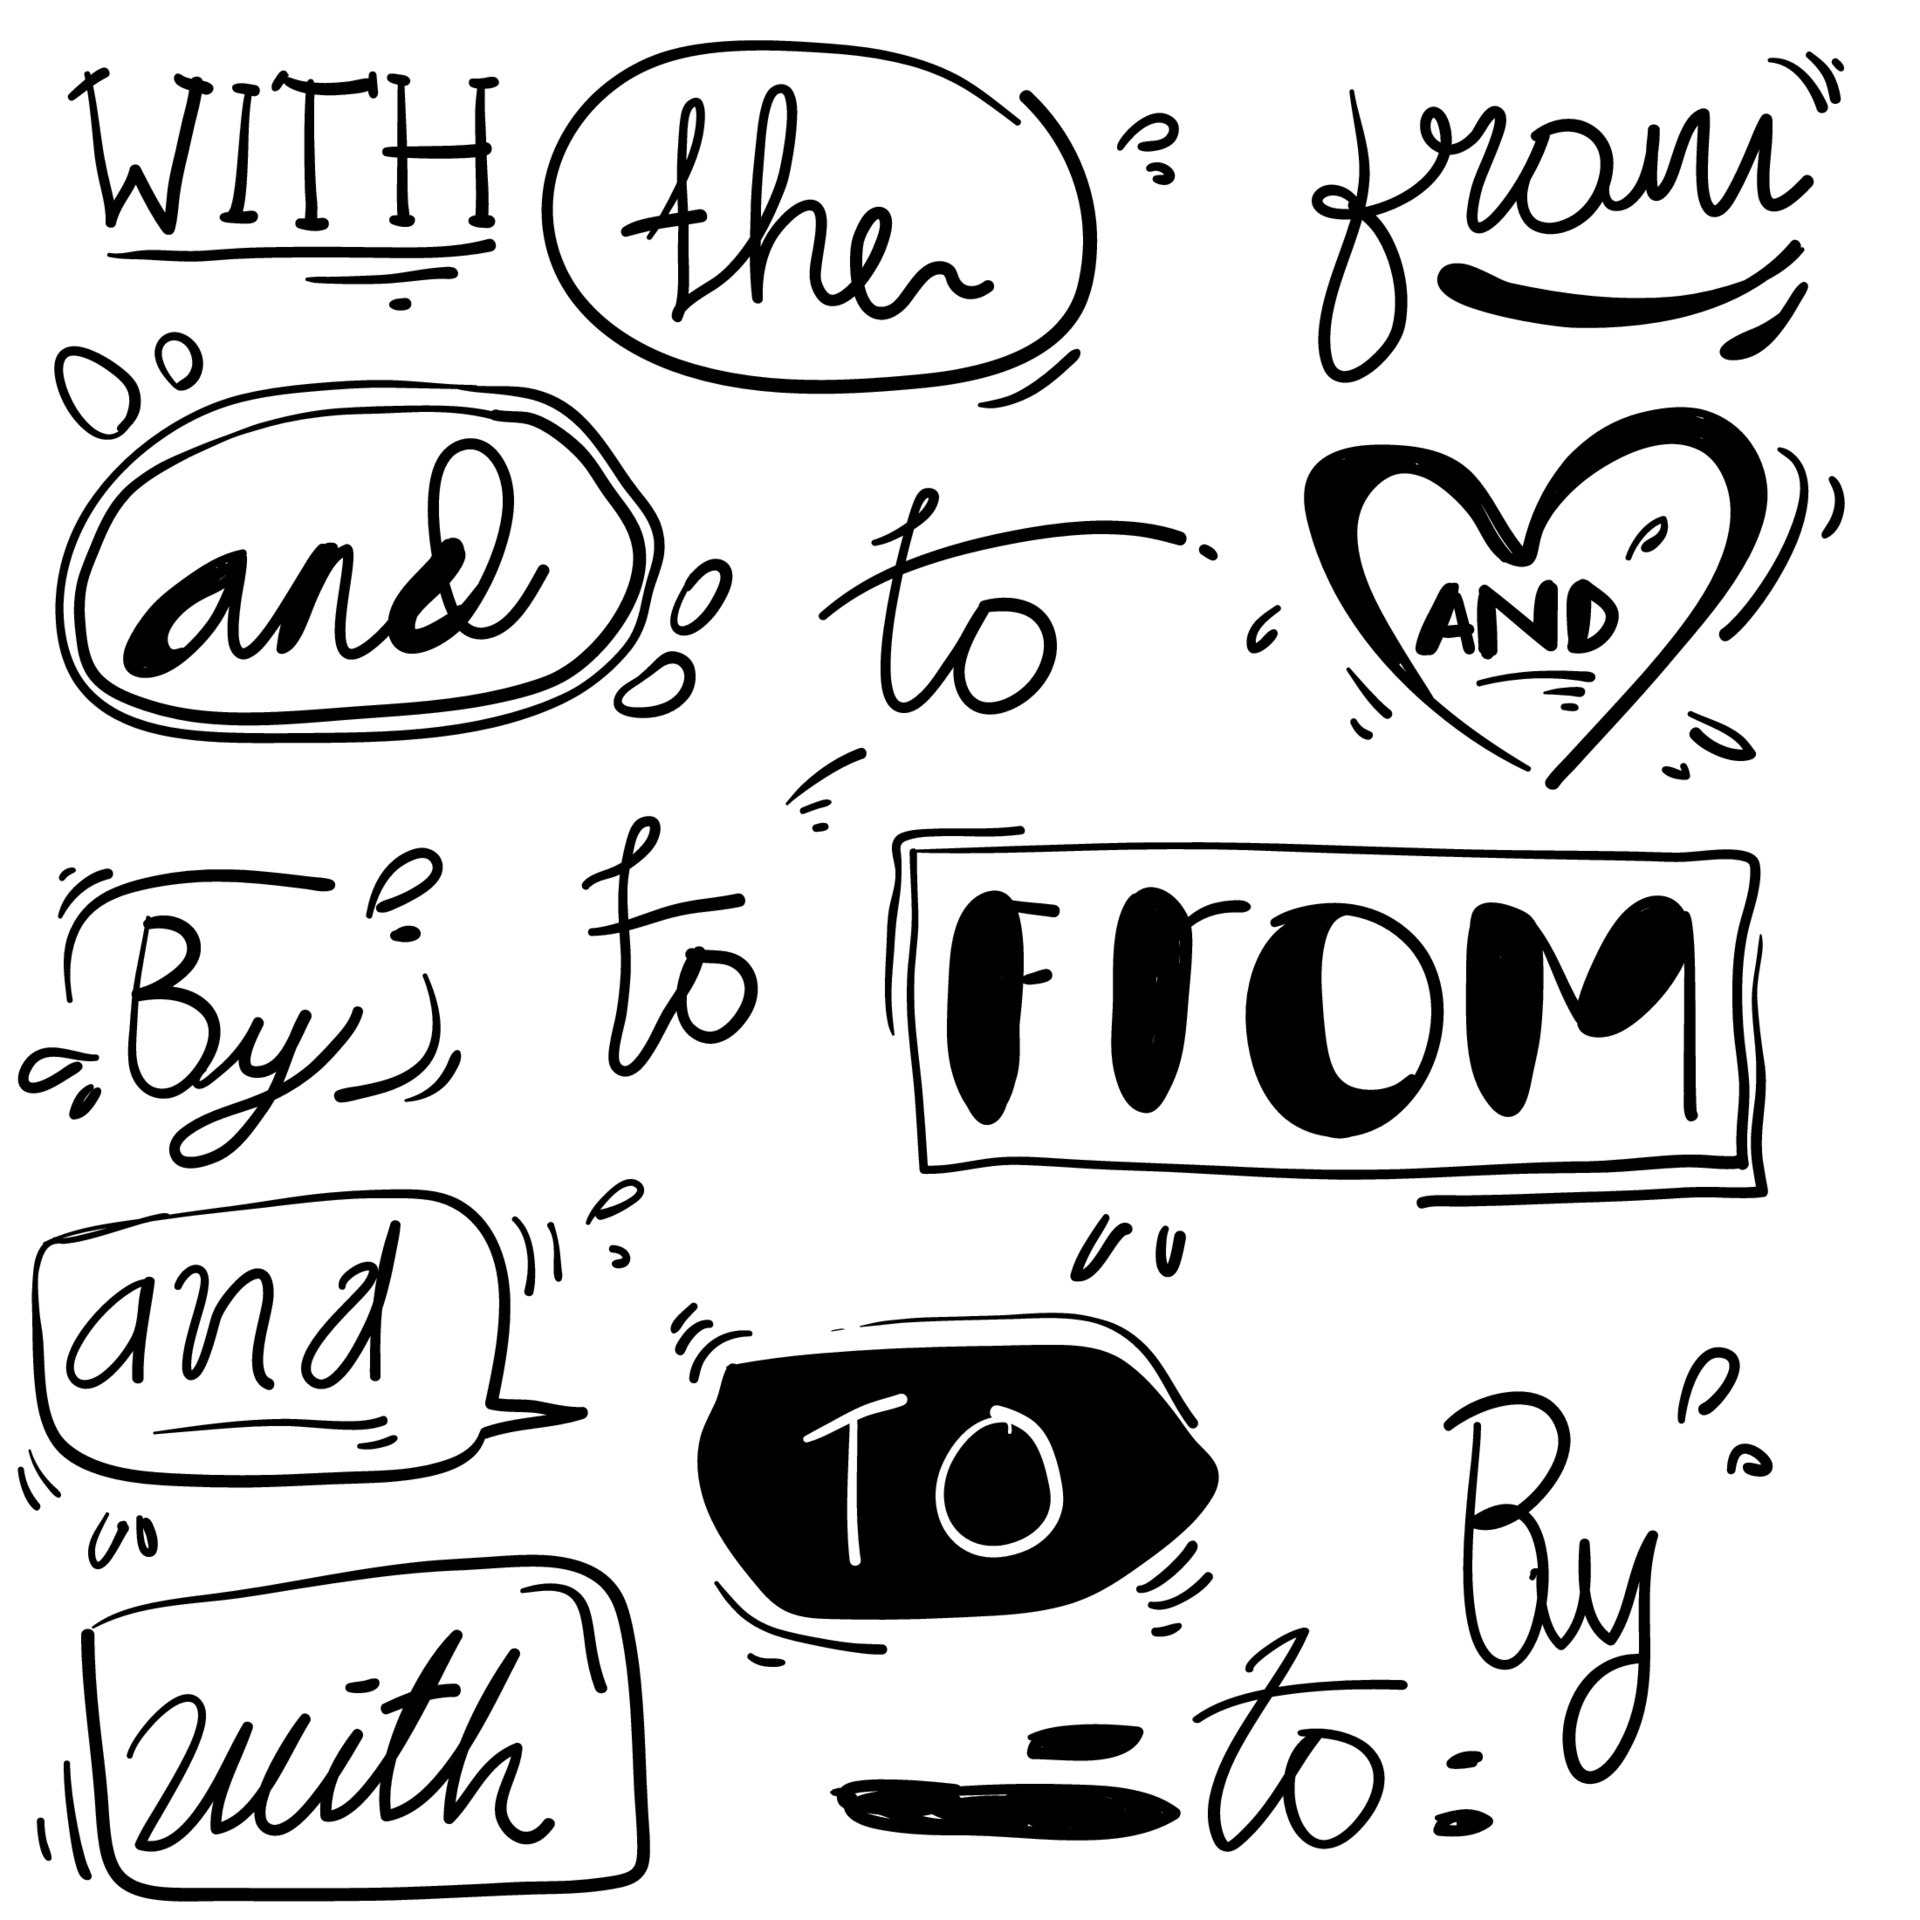 WITH
the
from
and
to
AND
By
to
FrOM
and
TO
By
with
to